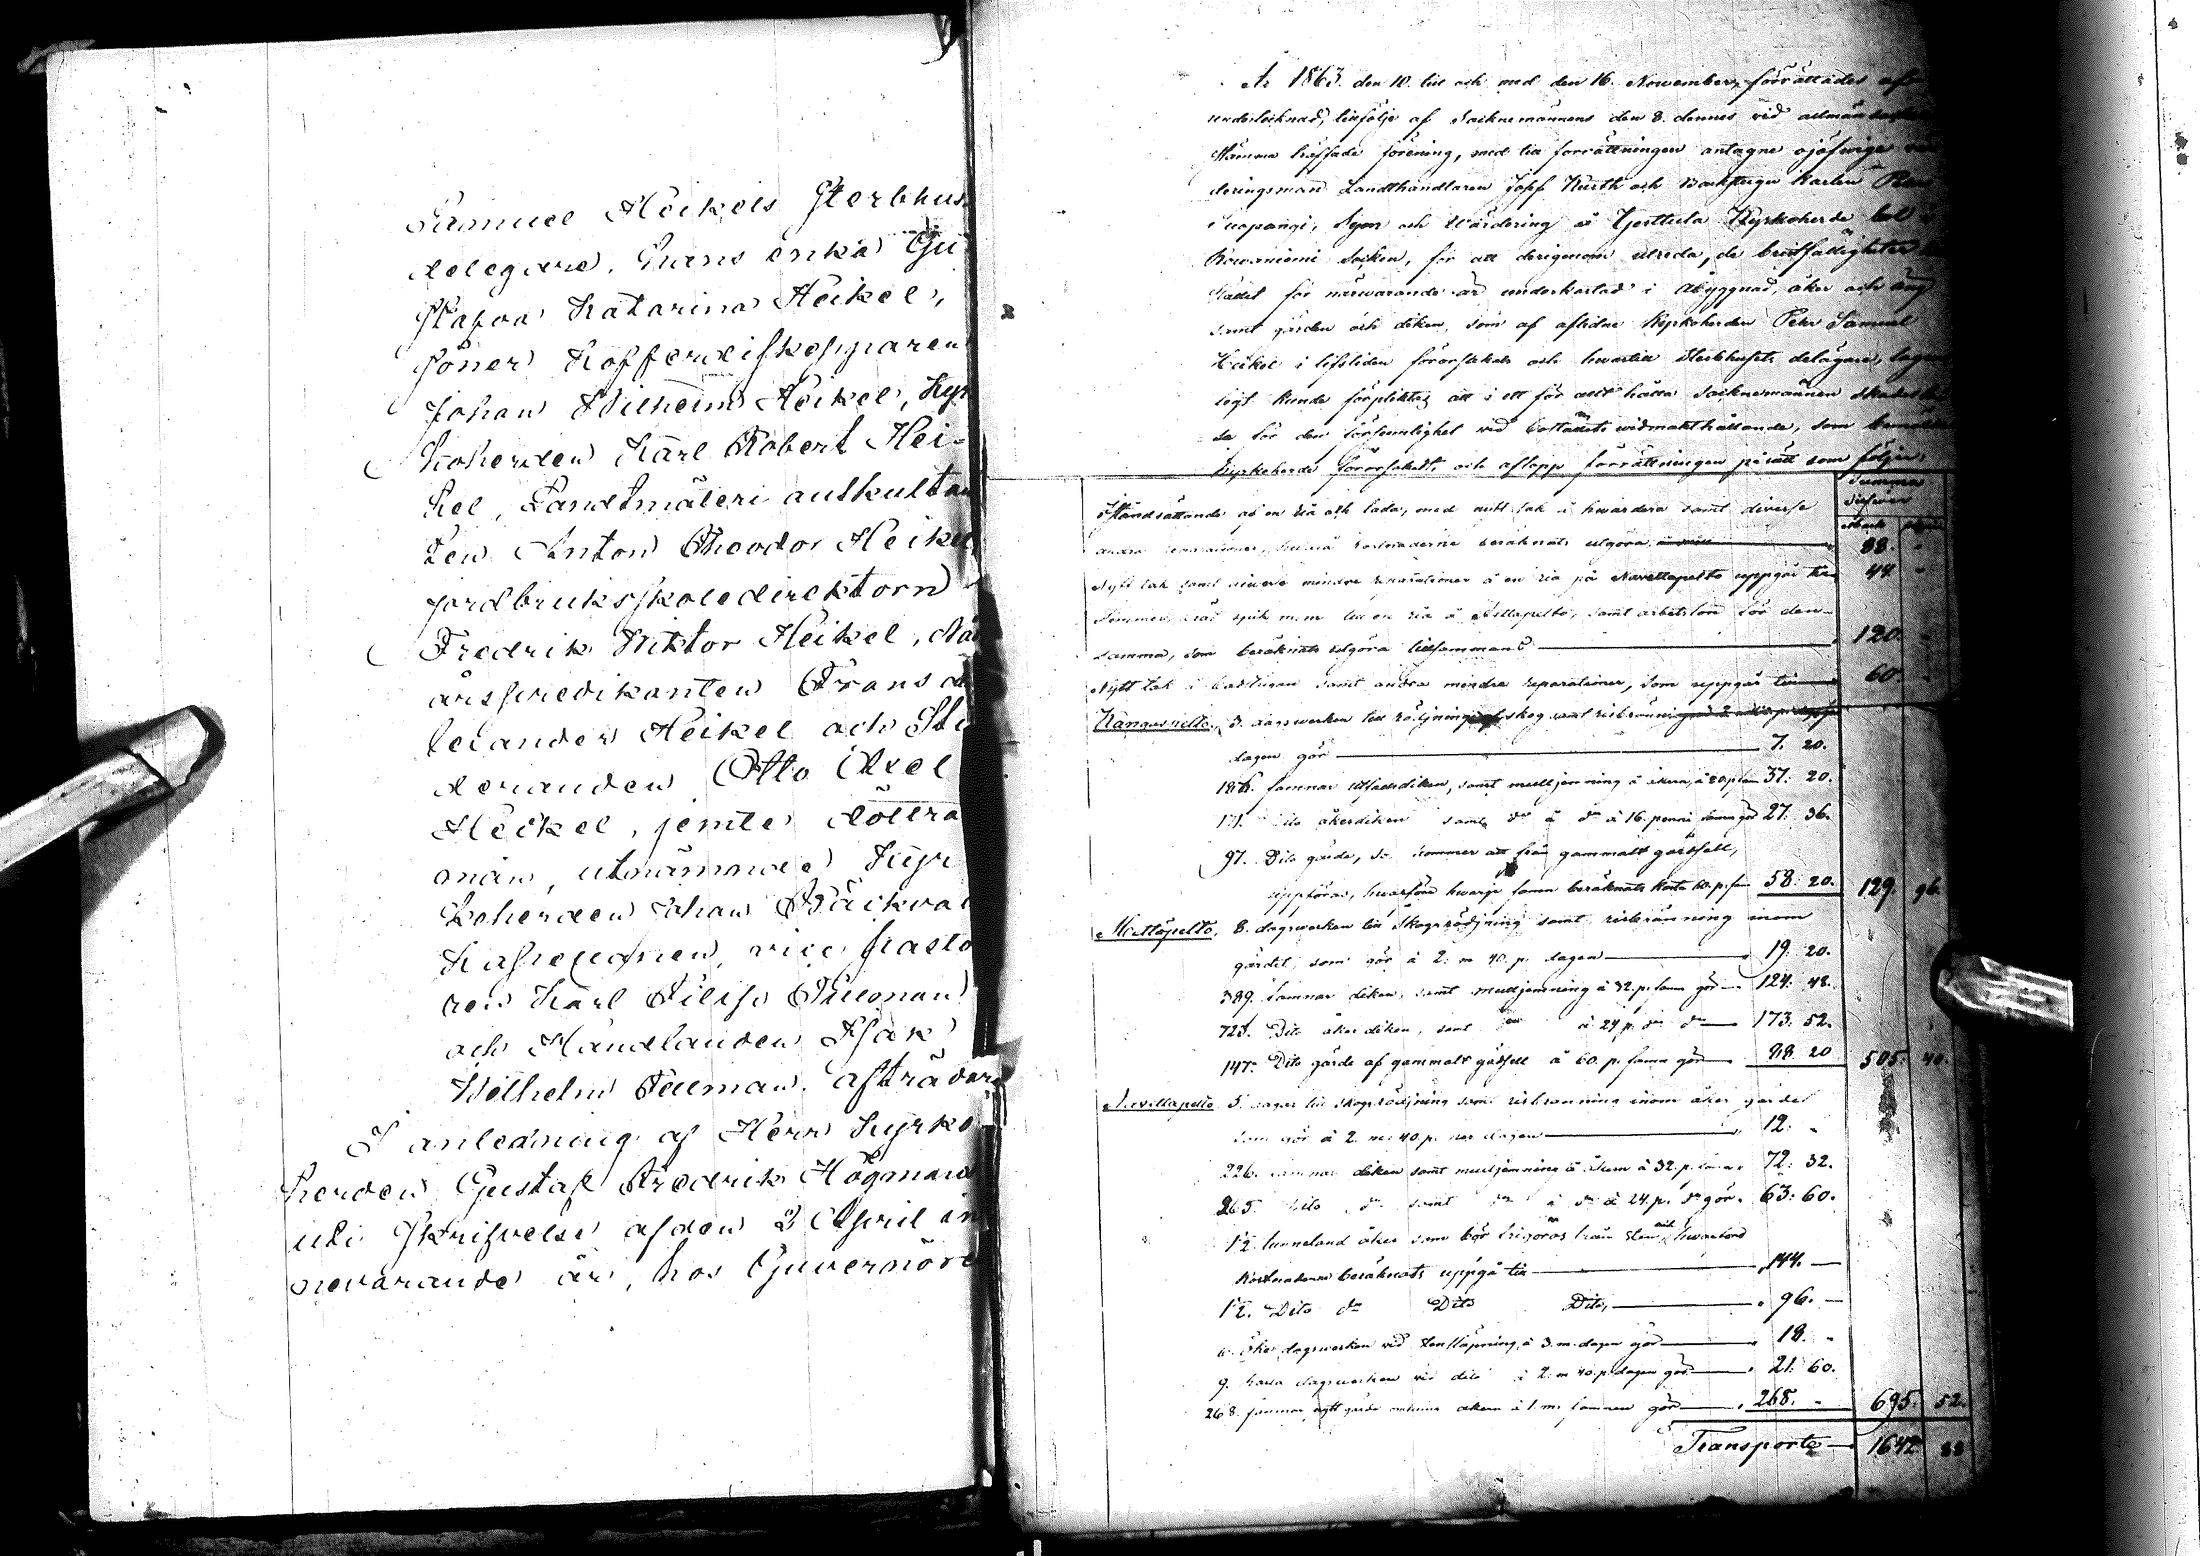 Samuel Heikels sterbhus
delegare, Hans enka Gu
stafva Katarina Heikel,
söner Kofferdiskepparen
Johan Wilhelm Heikel, Kyr
koherden Karl Robert Hei-
kel, Landtmäteri auskultan
ten Anton Theodor Heikel
jordbruksskoledirektorn
Fredrik Wiktor Heikel, Nåd
årspredikanten Frans A
lexander Heikel och Stu
deranden Otto Axel
Heikel, jemte döttra
män, utnämnde Kyr
koherden Johan Bäckva
Kapellanen, vice pasto
ren Karl Filip Tulonan
och Handlanden Isak
Wilhelm Felman, afträdare
I anledning af Herr Kyrko
herden Gustaf Fredrik Högman
uti skrifvelse af den 2 April in
nevarande år, hos Guvernöre
År 1863. den 10. till och med den 16. November, förrättades af
undertecknad, tillfölje af Socknemännens den 8. dennes vid allmän
Stämma träffade förening, med till förrättningen antagne ojäfvige vär
deringsmän Landthandlaren Jopp Kurth och Karlen
i Syn och Värdering å Hjerttula Kyrkoherde bol i
Rovaniemi Socken, för att derigenom utreda, de bristfälligheter
stadt för närvarande är underkastad i åbyggnad, åker och äng
samt gärden och diken, som af aflidne Kyrkoherden Pehr Samuel
Heikel i lifstiden förorsakats och hvartill Sterbhusets delägare, lag
ligt kunde förpliktas att i ett för allt hålla Socknemännen skadeslö
sa för den försumlighet vid boställets vidmakthållande, som
Kyrkoherde förorsakat, och aflopp förrättningen på sätt som följer:
Summa
Silfver
Mark
Iståndsättande af en ria och lada, med nytt tak å hvardera samt diverse
andra reparationer, hvilka kostnaderne beräknats utgöra 88. "
Nytt tak samt diverse mindre reparationer å en ria på Navettapelto uppgår till 44. "
Timmer, bräd spik m.m. till en ria å Mellapelto, samt arbetslön för den-
samma, som beräknats utgöra tillsammans 120. "
Nytt tak å badstugan samt andra mindre reparationer, som uppgår till 60. "
Kangasniitto. 3. dagsverken till rödjning af skog samt risbränning
dagen gör 7. 20.
186. famnar utfalsdiken, samt mulljemning å åkern, à 20. p. 37. 20.
171. Dito åkerdiken samt do å do à 16. penni famn gör 27. 36.
97. Dito gärde, som kommer att från gammalt gärdsfall,
uppföras, hvarföre hvarje famn beräknats kosta 60. p. 58. 20. 129. 96.
Mettäpelto. 8. dagsverken till Skogsrödjning samt risbränning inom
gärdet, som gör à 2. m 40. p. dagen 19. 20.
389. famnar diken, samt mulljemning à 32. p. famn gör 124. 48.
723. Dito åker diken, samt do à 24 p. do do 173. 52.
147. Dito gärde af gammalt gärdsfall à 60. p. famn gör 88. 20 505. 40.
Navettapelto 5. dagar till skogsrödjning samt risbränning inom åker gärdet
som gör à 2. m. 40. p. per dagen 12. "
226. famnar diken samt mulljemning à 32. p. 72. 32.
265. Dito do samt do å do à 24. p. do gör 63. 60.
1/2. tunneland åker som bör frigöras från sten och
kostnaderne beräknats uppgå till 144. —
1/2. Dito do Dito Dito, 96. —
6. Öke dagsverken vid stensläpning, à 3. m. dagen gör 18. "
9. karla dagsverken vid dito à 2. m 40. p. dagen gör 21. 60.
268. famnar nytt gärde omkring åkern à 1. m. famnen gör 268. " 695. 52.
Transport 1642 88